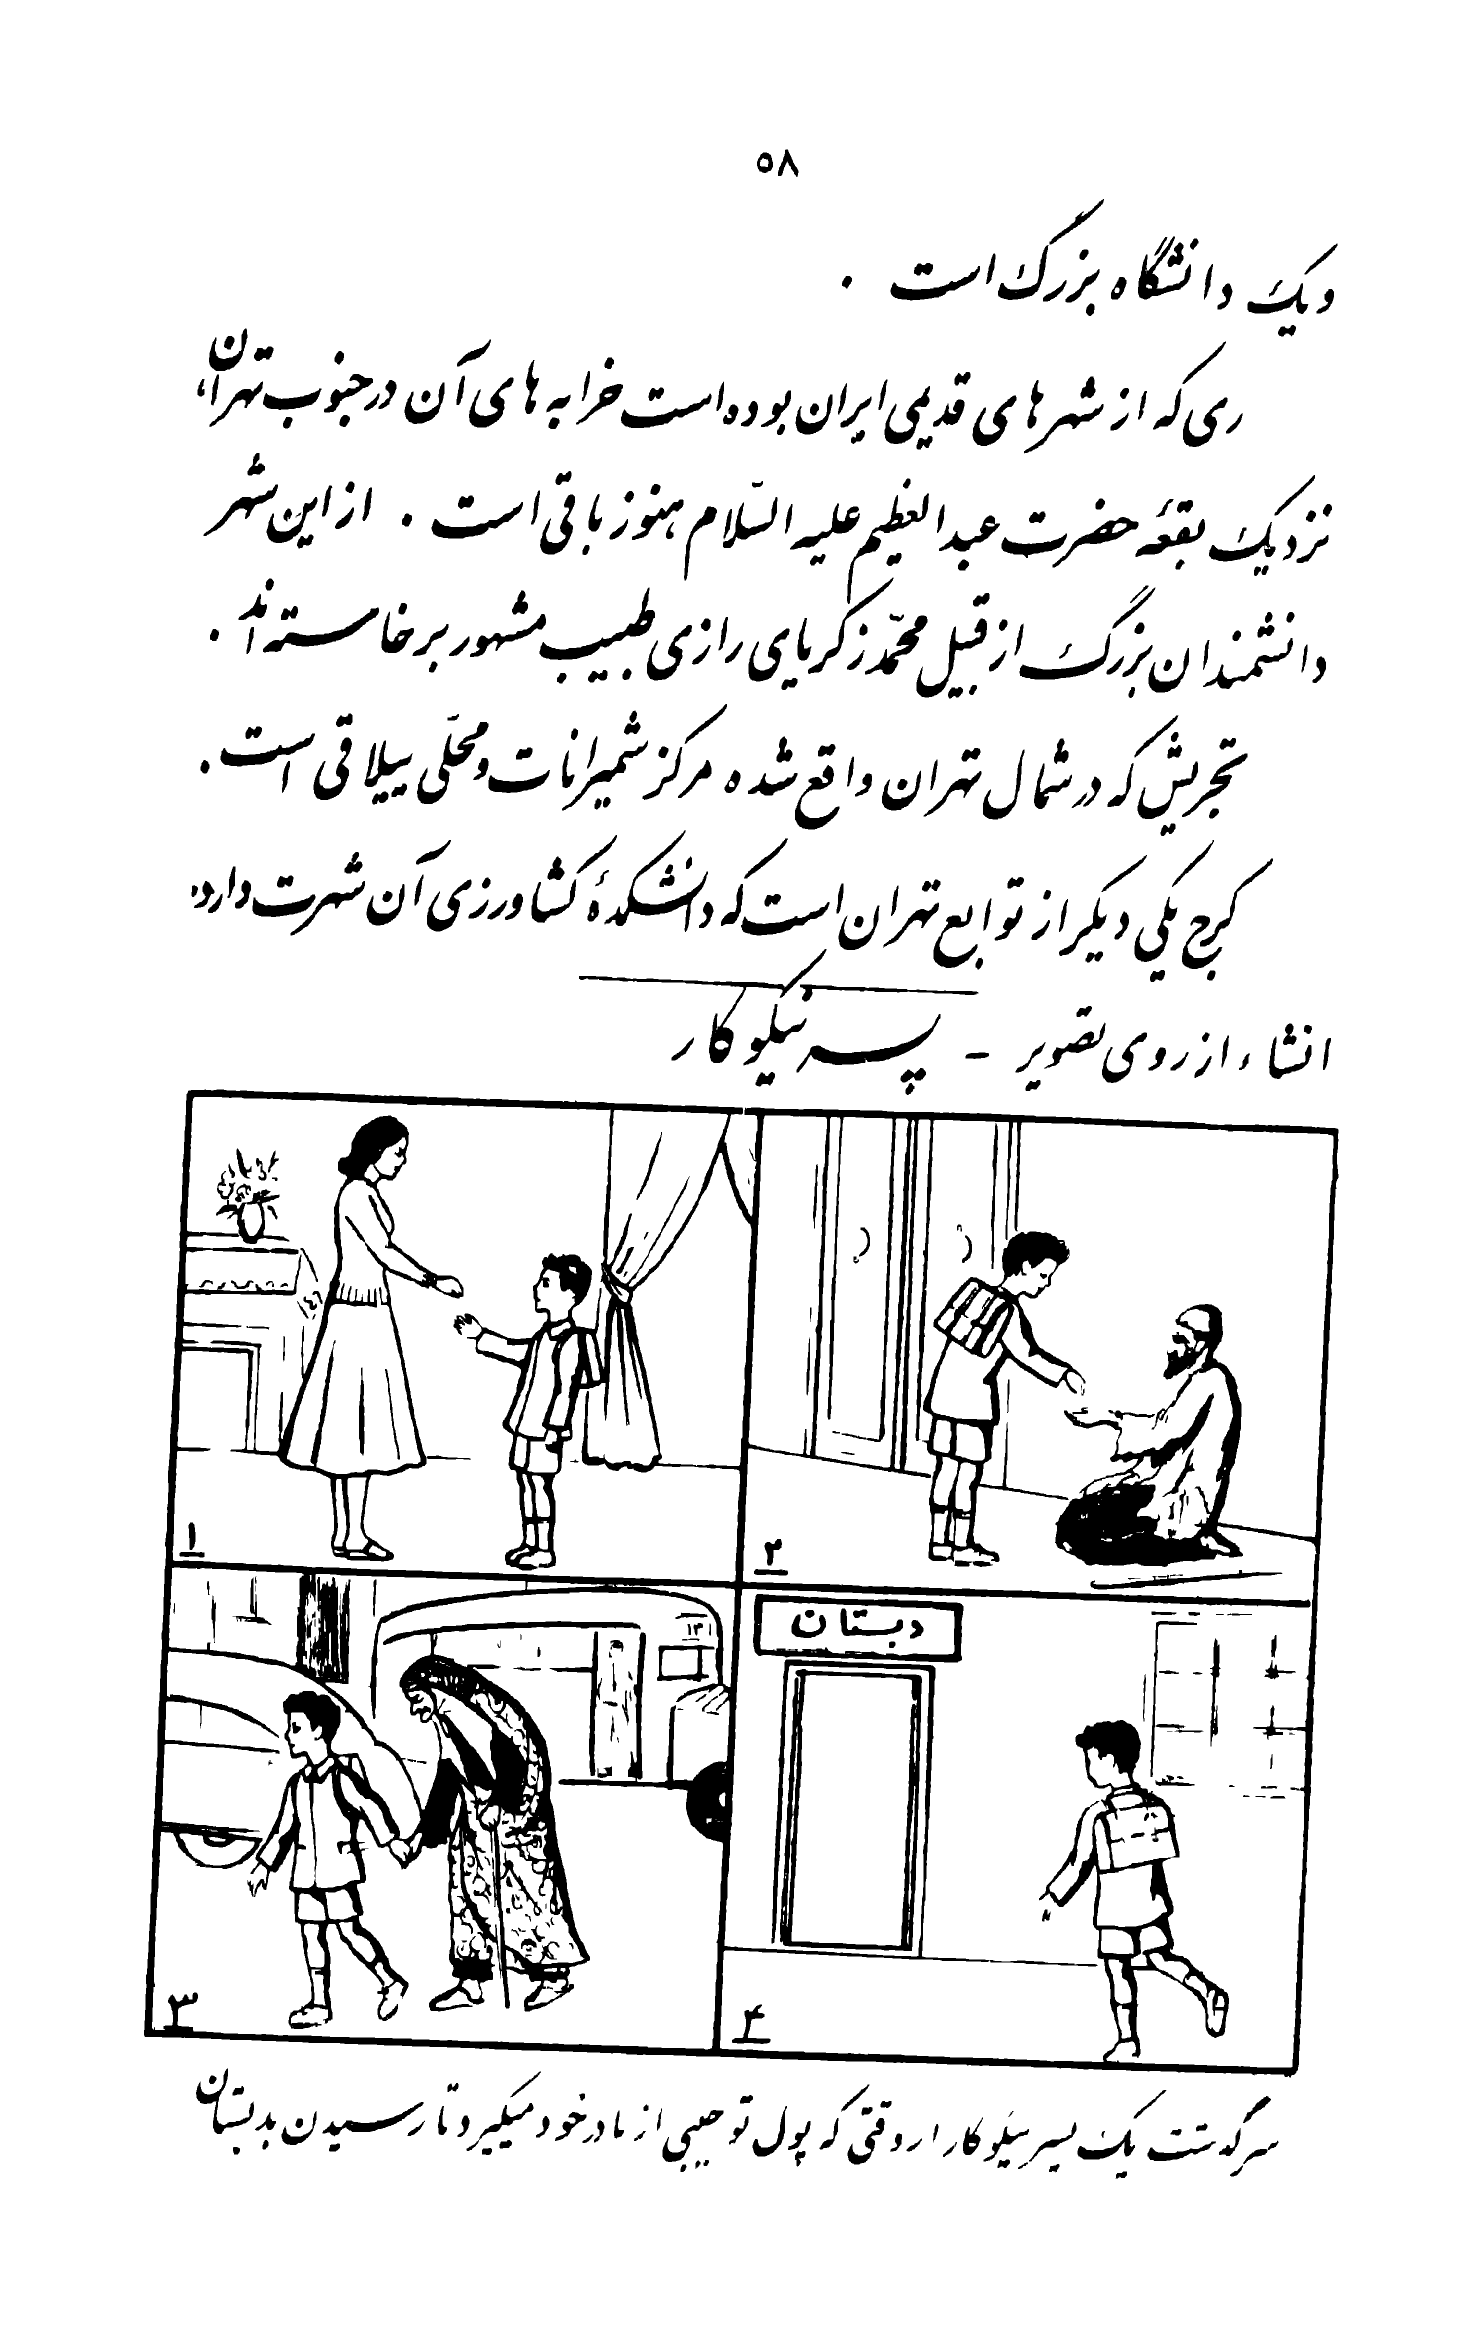 ۵۸
و یک دانشگاه بزرگ است .
ری که از شهرهای قدیمی ایران بوده است خرابه های آن در جنوب تهران،
نزدیک بقعهٔ حضرت عبدالعظیم علیه السّلام هنوز باقی است . از این شهر
دانشمندان بزرگ از قبیل محمّد زکریای رازی طبیب مشهور برخاسته اند .
تجریش که در شمال تهران واقع شده مرکز شمیرانات و محلّی ییلاقی است .
کرج یکی دیگر از توابع تهران است که دانشکدهٔ کشاورزی آن شهرت دارد .
انشاء از روی تصویر - پسر نیکوکار
۱
۲
۱۳۱
۳
دبستان
۴
سرگذشت یک پسر نیکوکار از وقتی که پول توجیبی از مادر خود میگیرد تا رسیدن بدبستان